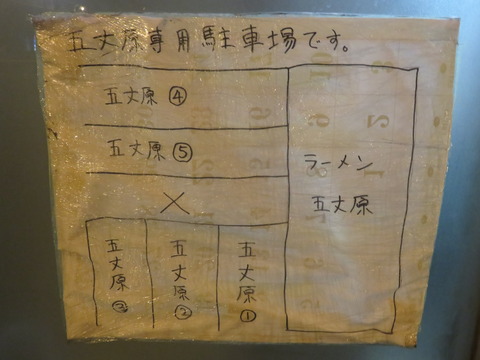 五丈原専用駐車場です。
五丈原④
五丈原⑤
×
ラーメン
五丈原
五丈原③
五丈原②
五丈原①